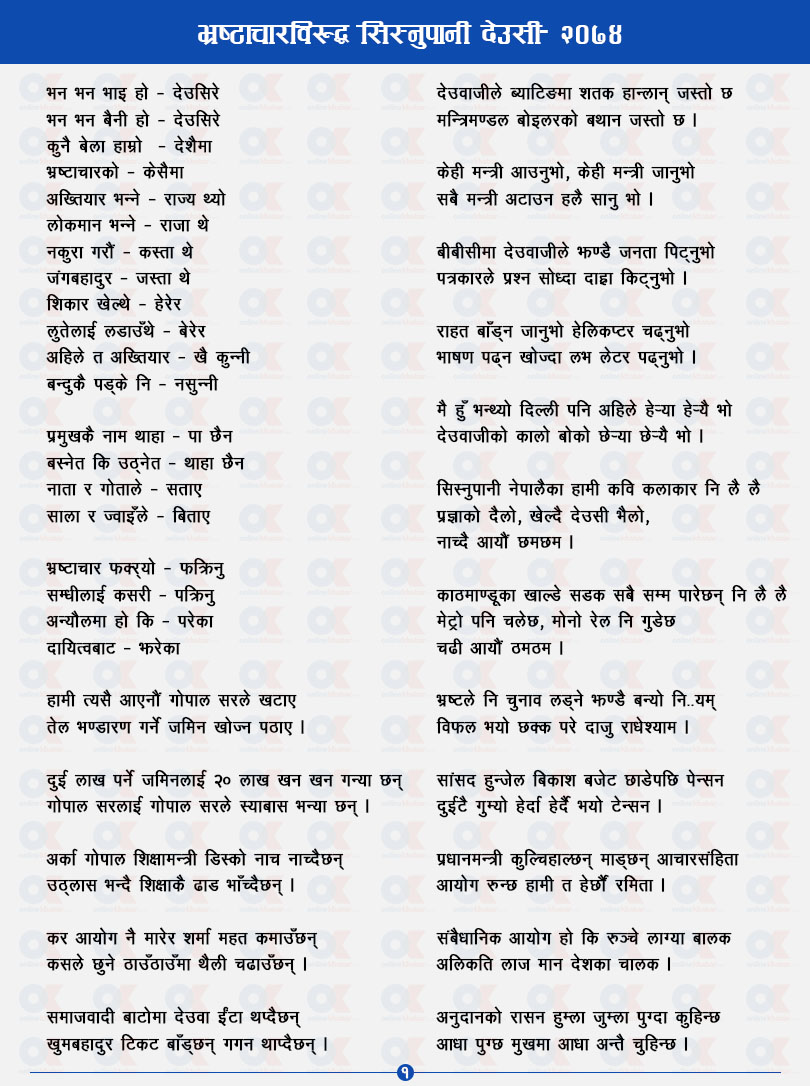 भ्रष्टाचारविरूद्ध सिस्नुपानी देउसी- २०७४
भन भन भाइ हो - देउसिरे
भन भन बैनी हो - देउसिरे
कुनै बेला हाम्रो - देशैमा
भ्रष्टाचारको - केसैमा
अख्तियार भन्ने - राज्य थ्यो
लोकमान भन्ने - राजा थे
नकुरा गरौं - कस्ता थे
जंगबहादुर - जस्ता थे
शिकार खेल्थे - हेरेर
लुतेलाई लडाउँथे - बेरेर
अहिले त अख्तियार - खै कुन्नी
बन्दुकै पड्के नि - नसुन्नी
प्रमुखकै नाम थाहा - पा छैन
बस्नेत कि उठ्नेत - थाहा छैन
नाता र गोताले - सताए
साला र ज्वाइँले - बिताए
भ्रष्टाचार फक्र्यो - फक्रिनु
सम्धीलाई कसरी - पक्रिनु
अन्यौलमा हो कि - परेका
दायित्वबाट - झरेका
हामी त्यसै आएनौं गोपाल सरले खटाए
तेल भण्डारण गर्ने जमिन खोज्न पठाए ।
दुई लाख पर्ने जमिनलाई २० लाख खन खन गन्या छन्
गोपाल सरलाई गोपाल सरले स्याबास भन्या छन् ।
अर्का गोपाल शिक्षामन्त्री डिस्को नाच नाच्दैछन्
उठ्लास भन्दै शिक्षाकै ढाड भाँच्दैछन् ।
कर आयोग नै मारेर शर्मा महत कमाउँछन्
कसले छुने ठाउँठाउँमा थैली चढाउँछन् ।
समाजवादी बाटोमा देउवा ईंटा थप्दैछन्
खुमबहादुर टिकट बाँड्छन् गगन थाप्दैछन् ।
देउवाजीले ब्याटिङमा शतक हान्लान् जस्तो छ
मन्त्रिमण्डल बोइलरको बथान जस्तो छ ।
केही मन्त्री आउनुभो, केही मन्त्री जानुभो
सबै मन्त्री अटाउन हलै सानु भो ।
बीबीसीमा देउवाजीले झण्डै जनता पिट्नुभो
पत्रकारले प्रश्न सोध्दा दाह्रा किट्नुभो ।
राहत बाँड्न जानुभो हेलिकप्टर चढ्नुभो
भाषण पढ्न खोज्दा लभ लेटर पढ्नुभो ।
मै हुँ भन्थ्यो दिल्ली पनि अहिले हेऱ्या हेऱ्यै भो
देउवाजीको कालो बोको छेऱ्या छेऱ्यै भो ।
सिस्नुपानी नेपालैका हामी कवि कलाकार नि लै लै
प्रज्ञाको दैलो, खेल्दै देउसी भैलो,
नाच्दै आयौं छमछम ।
काठमाण्डूका खाल्डे सडक सबै सम्म पारेछन् नि लै लै
मेट्रो पनि चलेछ, मोनो रेल नि गुडेछ
चढी आयौं ठमठम ।
भ्रष्टले नि चुनाव लड्ने झण्डै बन्यो नि..यम्
विफल भयो छक्क परे दाजु राधेश्याम ।
सांसद हुन्जेल बिकाश बजेट छाडेपछि पेन्सन
दुईटै गुम्यो हेर्दा हेर्दै भयो टेन्सन ।
प्रधानमन्त्री कुल्चिहाल्छन् माड्छन् आचारसंहिता
आयोग रुन्छ हामी त हेर्छौं रमिता ।
संबैधानिक आयोग हो कि रुञ्चे लाग्या बालक
अलिकति लाज मान देशका चालक ।
अनुदानको रासन हुम्ला जुम्ला पुग्दा कुहिन्छ
आधा पुग्छ मुखमा आधा अन्तै चुहिन्छ ।
१